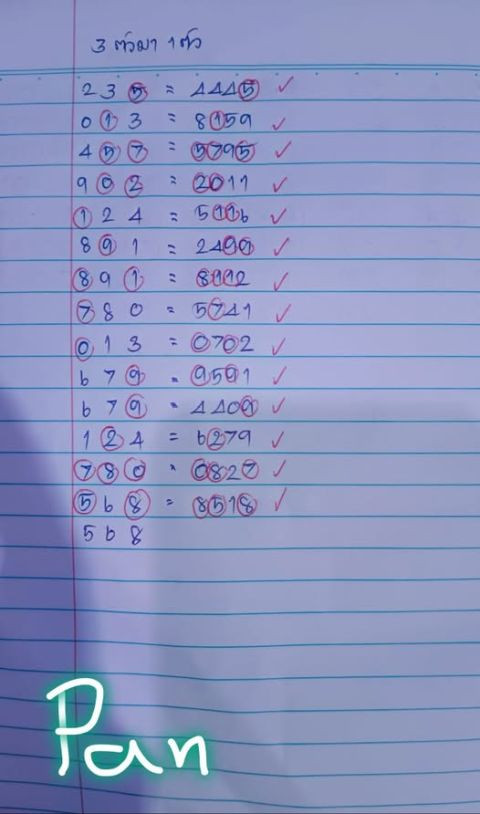 3 ตัวมา 1 ตัว
2 3 5 = 4445 ✓
0 1 3 = 8159 ✓
4 5 7 = 5795 ✓
9 0 2 = 2011 ✓
1 2 4 = 5116 ✓
8 9 1 = 2499 ✓
8 9 1 = 8112 ✓
7 8 0 = 5741 ✓
0 1 3 = 0702 ✓
6 7 9 = 9591 ✓
6 7 9 = 4409 ✓
1 2 4 = 6279 ✓
7 8 0 = 0827 ✓
5 6 8 = 8518 ✓
5 6 8
Pan